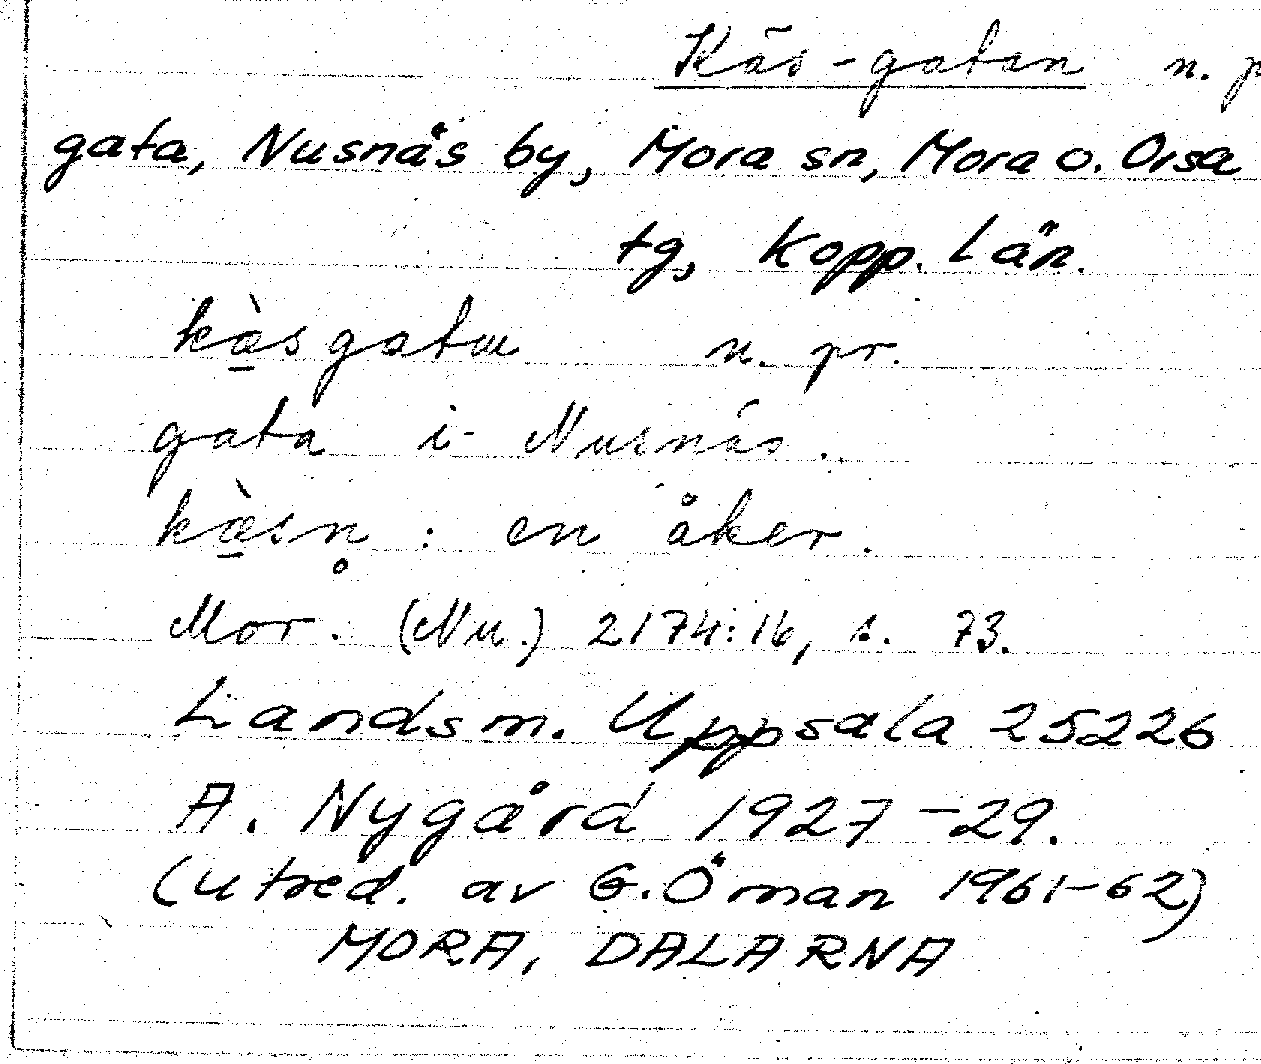 Käs-gatan n. p
gata, Nusnäs by, Mora sn, Mora o. Orsa
tg, Kopp. län.
kæ̠̀sgatæ n. pr.
gata i Nusnäs.
kæ̠̀sn̥ : en åker.
Mor. (Nu.) 2174:16, s. 73.
Landsm. Uppsala 25226
A. Nygård 1927-29.
(utred. av G. Öman 1961-62)
MORA, DALARNA